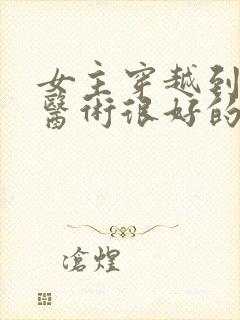 女主穿越到
醫術很好的
滄煌